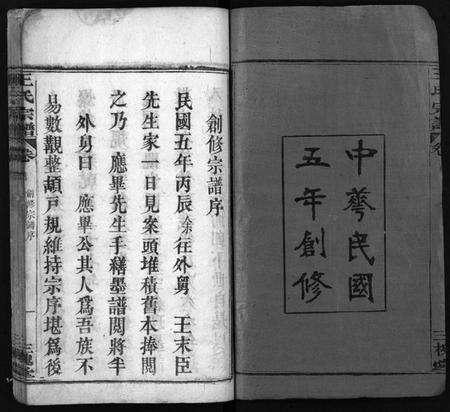 中華民國
五年創修
創修宗譜序
民國五年丙辰余在外舅 王末臣
先生家一日見案頭堆積舊本捧閱
之乃 應畢先生手繕墨譜閱將半
外舅曰 應畢公其人爲吾族不
易數觀整頓戸規維持宗序堪爲後
王氏宗譜 卷
創修宗譜序
一